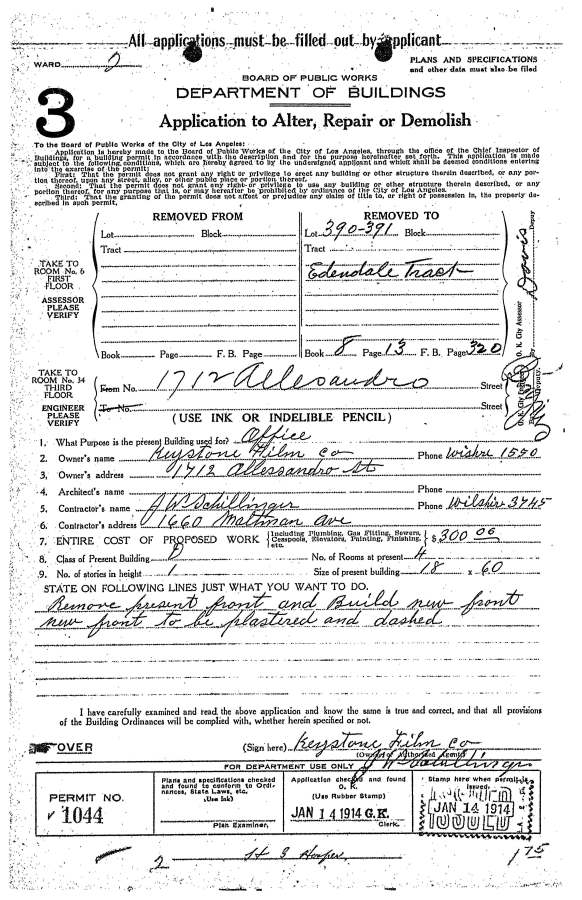 All applications must be filled out by applicant
WARD 2
PLANS AND SPECIFICATIONS
and other data must also be filed
BOARD OF PUBLIC WORKS
DEPARTMENT OF BUILDINGS
3
Application to Alter, Repair or Demolish
To the Board of Public Works of the City of Los Angeles:
Application is hereby made to the Board of Public Works of the City of Los Angeles, through the office of the Chief Inspector of
Buildings, for a building permit in accordance with the description and for the purpose hereinafter set forth. This application is made
subject to the following conditions, which are hereby agreed to by the undersigned applicant and which shall be deemed conditions entering
into the exercise of the permit:
First: That the permit does not grant any right or privilege to erect any building or other structure therein described, or any por-
tion thereof, upon any street, alley, or other public place or portion thereof.
Second: That the permit does not grant any right or privilege to use any building or other structure therein described, or any
portion thereof, for any purpose that is, or may hereafter be prohibited by ordinance of the City of Los Angeles.
Third: That the granting of the permit does not affect or prejudice any claim of title to, or right of possession in, the property de-
scribed in such permit.
REMOVED FROM REMOVED TO
Lot Block Lot 390-391 Block
Tract Tract
TAKE TO
ROOM No. 6
FIRST
FLOOR
ASSESSOR
PLEASE
VERIFY
Edendale Tract
Book Page F. B. Page Book 8 Page 13 F. B. Page 320
O. K. City Assessor Davis Deputy
TAKE TO
ROOM No. 34
THIRD
FLOOR
ENGINEER
PLEASE
VERIFY
From No. 1712 Allesandro Street
To No. Street
O. K. City Deputy
(USE INK OR INDELIBLE PENCIL)
1. What Purpose is the present Building used for? Office
2. Owner's name Keystone Film Co Phone Wishre 1550
3. Owner's address 1712 Allessandro St
4. Architect's name Phone
5. Contractor's name J W Schillinger Phone Wilshire 3745
6. Contractor's address 1660 Ave
7. ENTIRE COST OF PROPOSED WORK {Including Plumbing, Gas Fitting, Sewers, Cesspools, Elevators, Painting, Finishing, etc.} $ 300 00
8. Class of Present Building D No. of Rooms at present 4
9. No. of stories in height 1 Size of present building 18 x 60
STATE ON FOLLOWING LINES JUST WHAT YOU WANT TO DO.
Remove present front and Build new front
new front to be plastered and dashed
I have carefully examined and read the above application and know the same is true and correct, and that all provisions
of the Building Ordinances will be complied with, whether herein specified or not.
OVER
(Sign here) Keystone Film Co
(Owner or Authorized Agent)
J W Schillinger
FOR DEPARTMENT USE ONLY
PERMIT NO.
1044
Plans and specifications checked
and found to conform to Ordi-
nances, State Laws, etc.
(Use Ink)
Plan Examiner.
Application checked and found
O. K.
(Use Rubber Stamp)
JAN 14 1914 G.K.
Clerk.
Stamp here when permit is
issued.
JAN 14 1914
ISSUED
2 H S 1 75